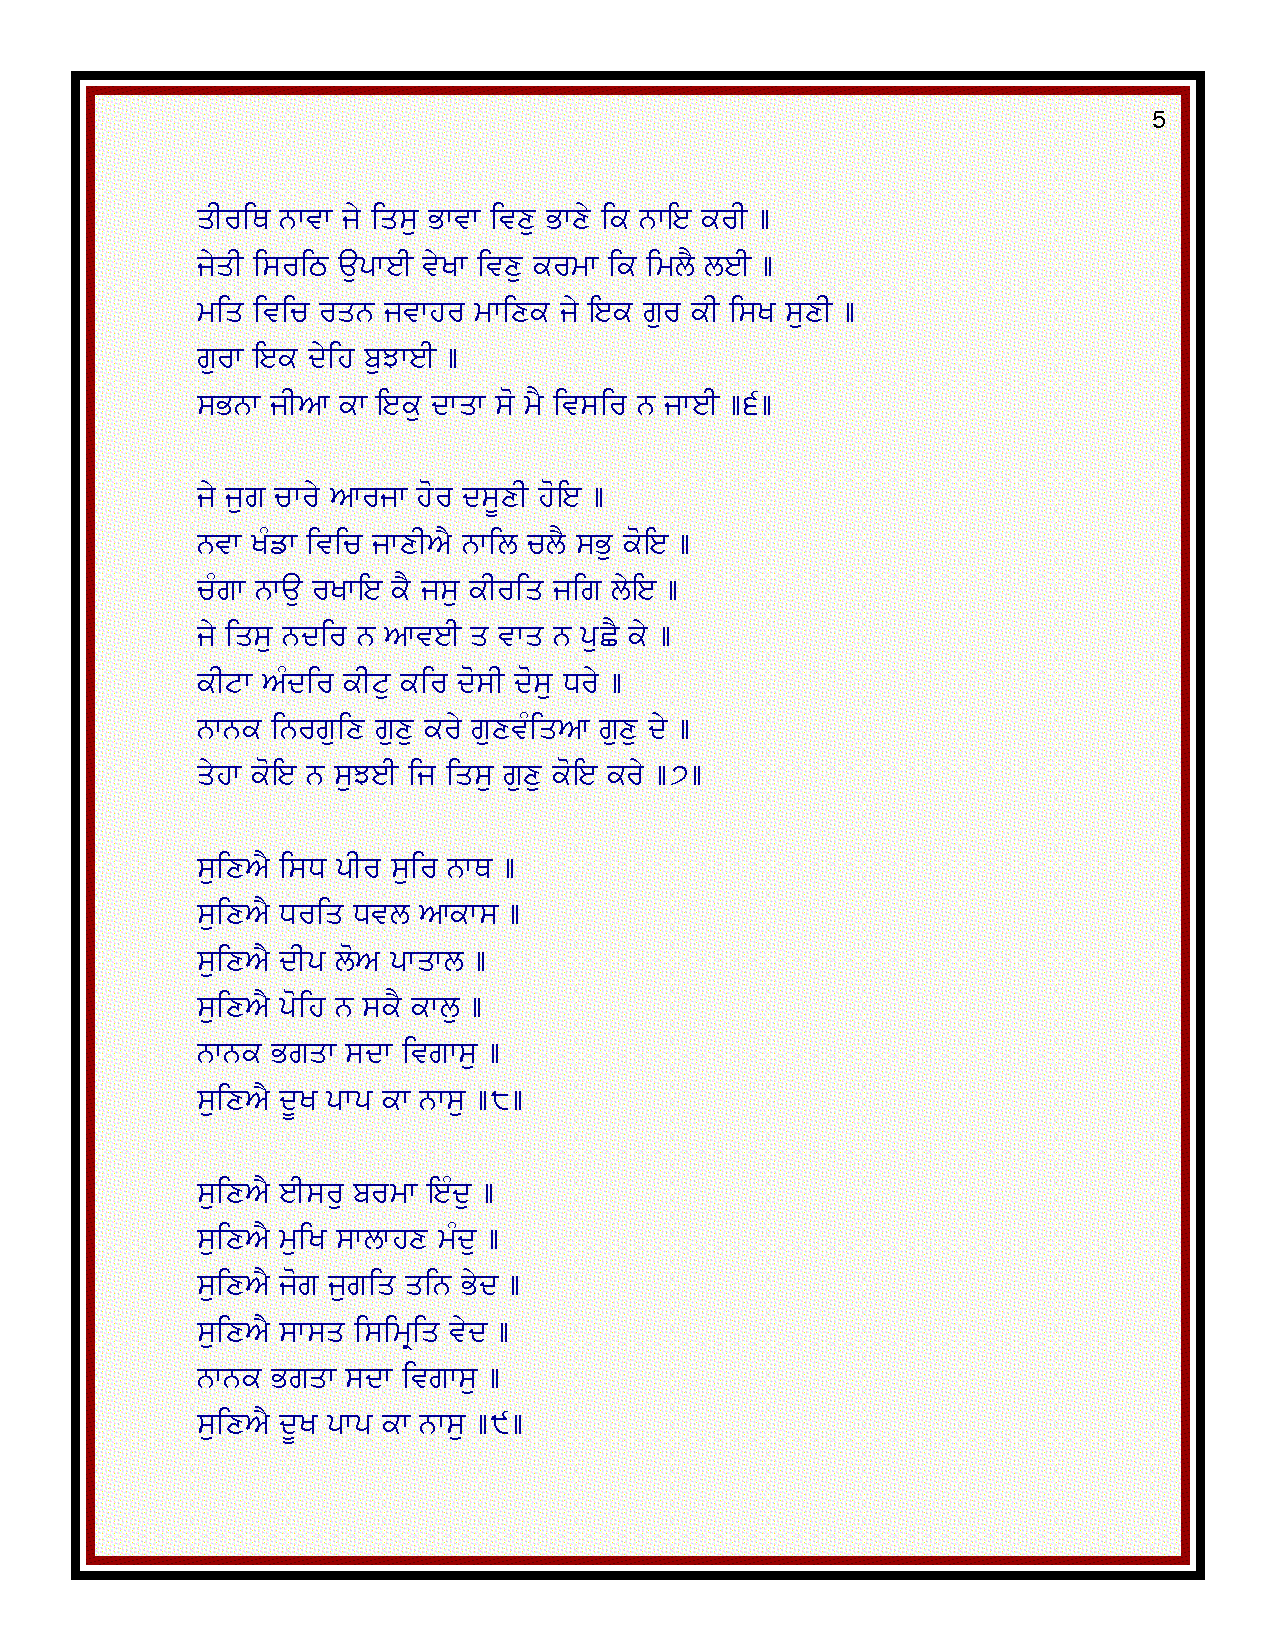 5
ਤੀਰਥਿ ਨਾਵਾ ਜੇ ਤਿਸੁ ਭਾਵਾ ਵਿਣੁ ਭਾਣੇ ਕਿ ਨਾਇ ਕਰੀ ॥
ਜੇਤੀ ਸਿਰਠਿ ਉਪਾਈ ਵੇਖਾ ਵਿਣੁ ਕਰਮਾ ਕਿ ਮਿਲੈ ਲਈ ॥
ਮਤਿ ਵਿਚਿ ਰਤਨ ਜਵਾਹਰ ਮਾਣਿਕ ਜੇ ਇਕ ਗੁਰ ਕੀ ਸਿਖ ਸੁਣੀ ॥
ਗੁਰਾ ਇਕ ਦੇਹਿ ਬੁਝਾਈ ॥
ਸਭਨਾ ਜੀਆ ਕਾ ਇਕੁ ਦਾਤਾ ਸੋ ਮੈ ਵਿਸਰਿ ਨ ਜਾਈ ॥੬॥
ਜੇ ਜੁਗ ਚਾਰੇ ਆਰਜਾ ਹੋਰ ਦਸੂਣੀ ਹੋਇ ॥
ਨਵਾ ਖੰਡਾ ਵਿਚਿ ਜਾਣੀਐ ਨਾਲਿ ਚਲੈ ਸਭੁ ਕੋਇ ॥
ਚੰਗਾ ਨਾਉ ਰਖਾਇ ਕੈ ਜਸੁ ਕੀਰਤਿ ਜਗਿ ਲੇਇ ॥
ਜੇ ਤਿਸੁ ਨਦਰਿ ਨ ਆਵਈ ਤ ਵਾਤ ਨ ਪੁਛੈ ਕੇ ॥
ਕੀਟਾ ਅੰਦਰਿ ਕੀਟੁ ਕਰਿ ਦੋਸੀ ਦੋਸੁ ਧਰੇ ॥
ਨਾਨਕ ਨਿਰਗੁਣਿ ਗੁਣੁ ਕਰੇ ਗੁਣਵੰਤਿਆ ਗੁਣੁ ਦੇ ॥
ਤੇਹਾ ਕੋਇ ਨ ਸੁਝਈ ਜਿ ਤਿਸੁ ਗੁਣੁ ਕੋਇ ਕਰੇ ॥੭॥
ਸੁਣਿਐ ਸਿਧ ਪੀਰ ਸੁਰਿ ਨਾਥ ॥
ਸੁਣਿਐ ਧਰਤਿ ਧਵਲ ਆਕਾਸ ॥
ਸੁਣਿਐ ਦੀਪ ਲੋਅ ਪਾਤਾਲ ॥
ਸੁਣਿਐ ਪੋਹਿ ਨ ਸਕੈ ਕਾਲੁ ॥
ਨਾਨਕ ਭਗਤਾ ਸਦਾ ਵਿਗਾਸੁ ॥
ਸੁਣਿਐ ਦੂਖ ਪਾਪ ਕਾ ਨਾਸੁ ॥੮॥
ਸੁਣਿਐ ਈਸਰੁ ਬਰਮਾ ਇੰਦੁ ॥
ਸੁਣਿਐ ਮੁਖਿ ਸਾਲਾਹਣ ਮੰਦੁ ॥
ਸੁਣਿਐ ਜੋਗ ਜੁਗਤਿ ਤਨਿ ਭੇਦ ॥
ਸੁਣਿਐ ਸਾਸਤ ਸਿਮ੍ਰਿਤਿ ਵੇਦ ॥
ਨਾਨਕ ਭਗਤਾ ਸਦਾ ਵਿਗਾਸੁ ॥
ਸੁਣਿਐ ਦੂਖ ਪਾਪ ਕਾ ਨਾਸੁ ॥੯॥